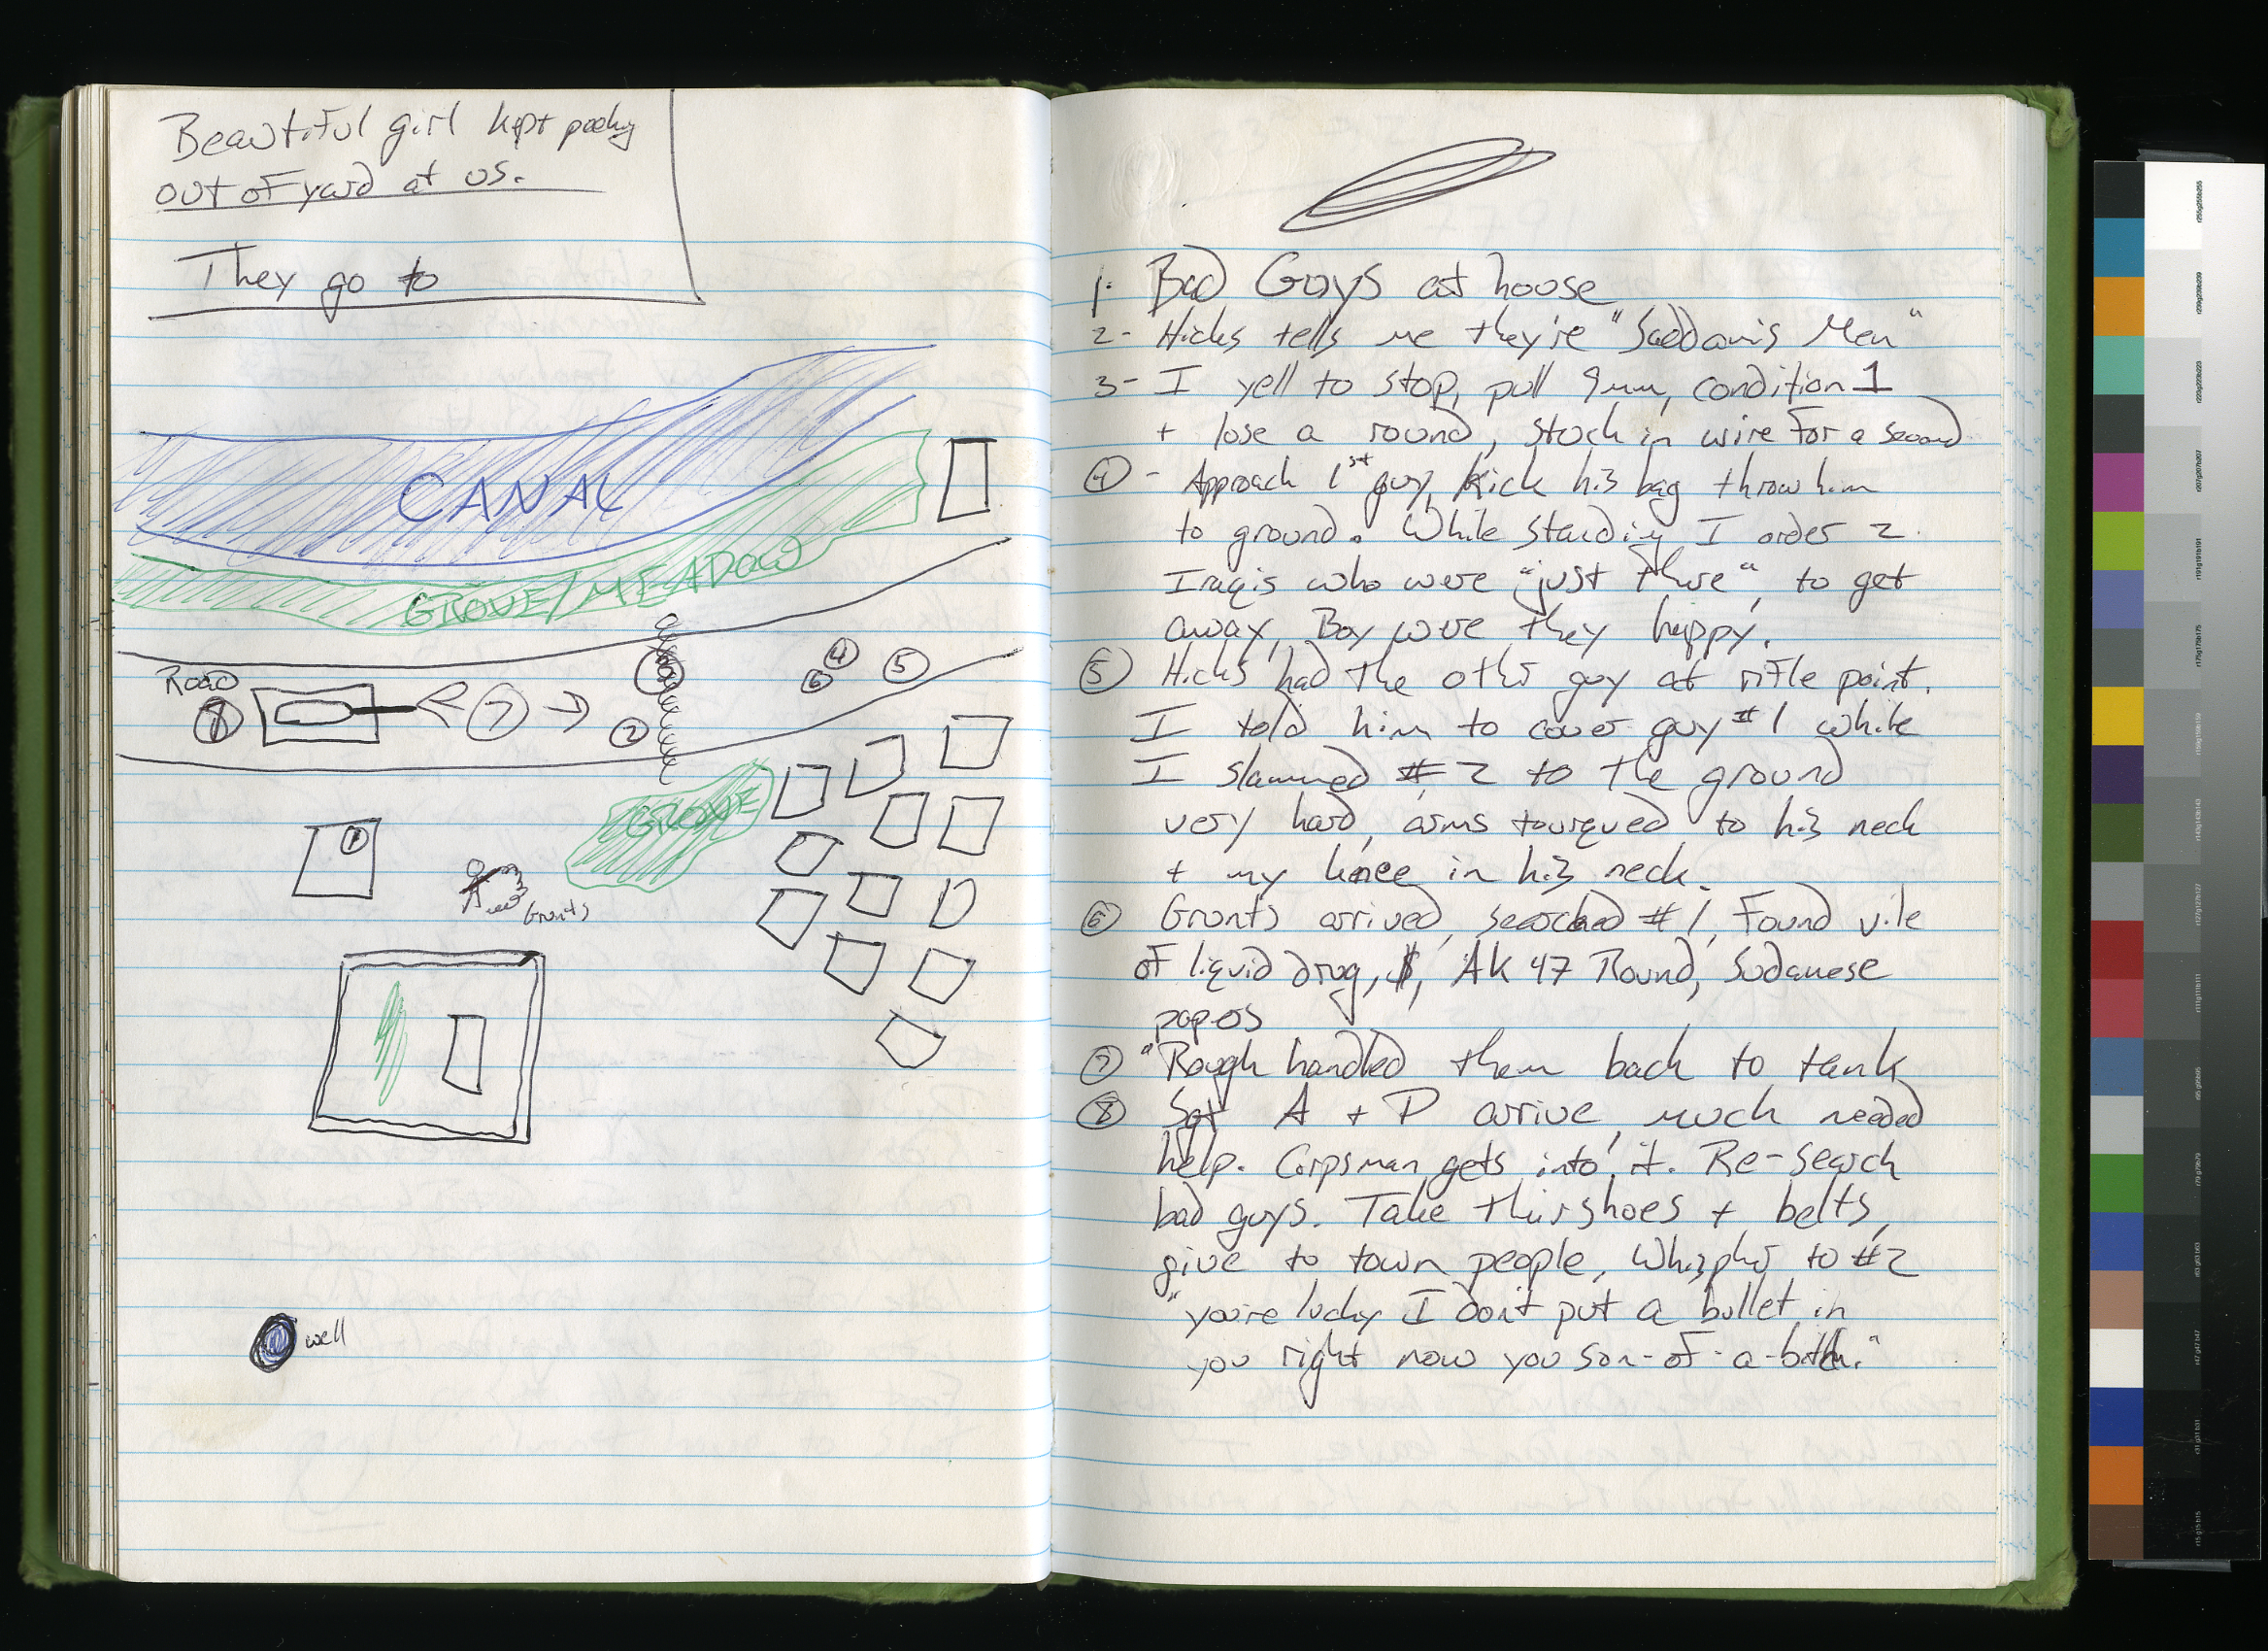 Beautiful girl kept peeking
out of yard at us.
They go to
CANAL
GROVE/MEADOW
Road
8
7
3
2
4
6
5
GROVE
1
Grunts
well
1. Bad Guys at house
2- Hicks tells me they're "Saddam's Men"
3- I yell to stop, pull 9mm, condition 1
+ lose a round, stuck in wire for a second
4 - Approach 1st guy, kick his bag throw him
to ground. While standing I order 2
Iraqis who were "just there", to get
away, Boy were they happy.
5 Hicks had the other guy at rifle point.
I told him to cover guy #1 while
I slammed #2 to the ground
very hard, arms tourqued to his neck
+ my knee in his neck.
6 Grunts arrived, searched #1, Found vile
of liquid drug, $, AK 47 Round, Sudanese
papers
7 "Rough handled them back to tank
8 Sgt A + P arrive, much needed
help. Corpsman gets into it. Re-search
bad guys. Take their shoes + belts,
give to town people. Whispher to #2
"you're lucky I don't put a bullet in
you right now you son-of-a-bitch."